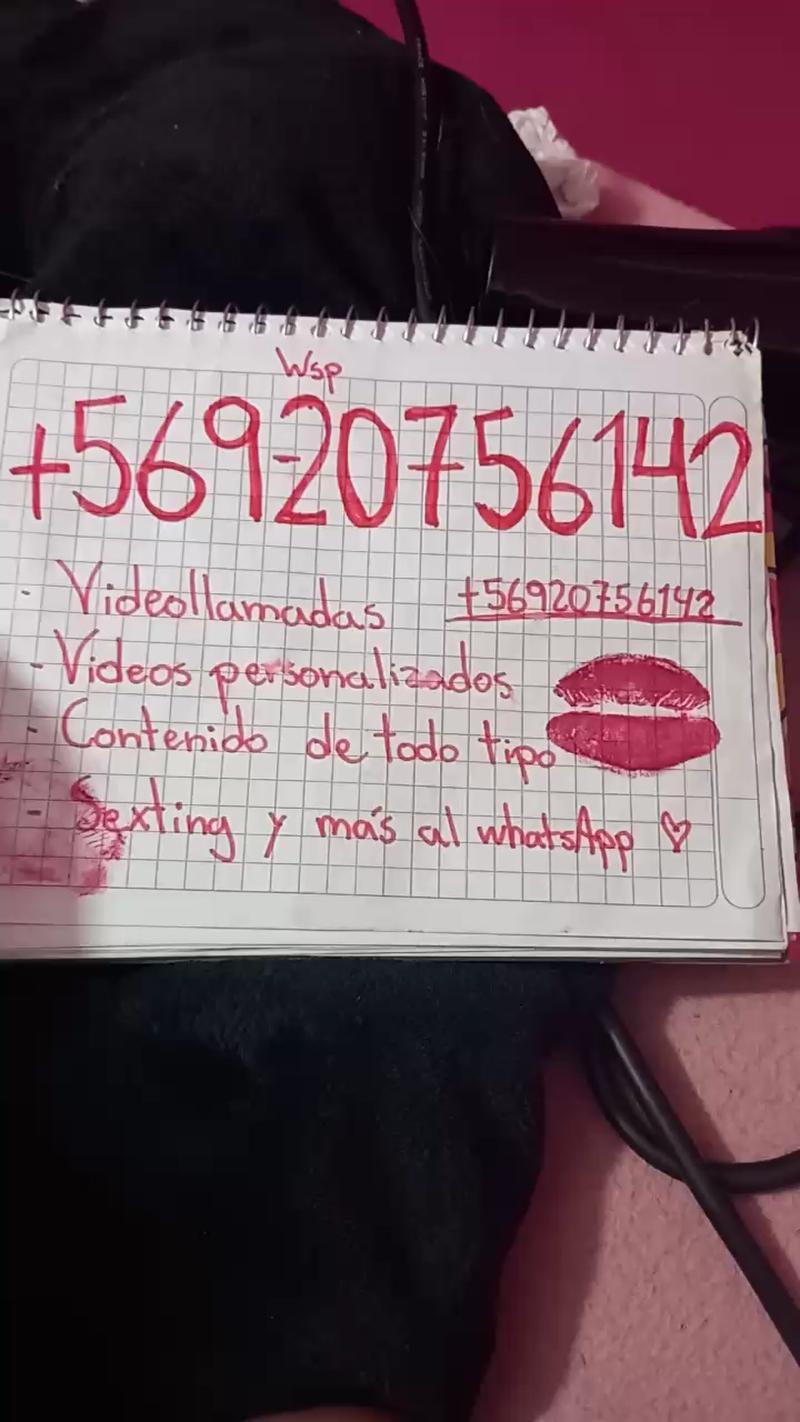 Wsp
+569-20756142
- Videollamadas +56920756142
- Videos personalizados
- Contenido de todo tipo
- Sexting y más al whatsApp ♡